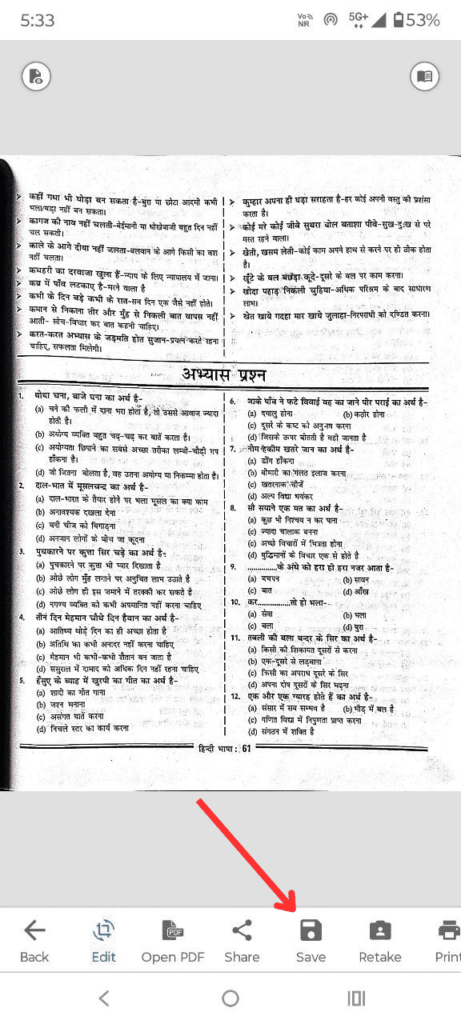 5:33
Vo))
NR
5G+
53%
➤ कहीं गधा भी घोड़ा बन सकता है-बुरा या छोटा आदमी कभी
भला/बड़ा नहीं बन सकता।
➤ कागज की नाव नहीं चलती-बेईमानी या धोखेबाजी बहुत दिन नहीं
चल सकती।
➤ काले के आगे दीया नहीं जलता-बलवान के आगे किसी का वश
नहीं चलता।
➤ कचहरी का दरवाजा खुला है-न्याय के लिए न्यायालय में जाना।
➤ कब्र में पाँव लटकाए है-मरने वाला है
➤ कभी के दिन बड़े कभी के रात-सब दिन एक जैसे नहीं होते।
➤ कमान से निकला तीर और मुँह से निकली बात वापस नहीं
आती- सोच-विचार कर बात कहनी चाहिए।
➤ करत-करत अभ्यास के जड़मति होत सुजान-प्रयत्न-करते रहना
चाहिए, सफलता मिलेगी।
➤ कुम्हार अपना ही घड़ा सराहता है-हर कोई अपनी वस्तु की प्रशंसा
करता है।
➤ कोई मरे कोई जीवे सुथरा घोल बताशा पीवे-सुख-दुःख से परे
मस्त रहने वाला।
➤ खेती, खसम लेती-कोई काम अपने हाथ से करने पर ही ठीक होता
है।
➤ खूँटे के बल बछड़ा-कूदे-दूसरे के बल पर काम करना।
➤ खोदा पहाड़ निकली चुहिया-अधिक परिश्रम के बाद साधारण
लाभ।
➤ खेत खाये गदहा मार खाये जुलाहा-निरपराधी को दण्डित करना।
अभ्यास प्रश्न
1. थोथा चना, बाजे घना का अर्थ है-
(a) चने की फली में दाना भरा होता है, तो उससे आवाज ज्यादा
होती है।
(b) अयोग्य व्यक्ति बहुत चढ़-चढ़ कर बातें करता है।
(c) अयोग्यता छिपाने का सबसे अच्छा तरीका लम्बी-चौड़ी गप
हाँकना है।
(d) जो जितना बोलता है, वह उतना अयोग्य या निकम्मा होता है।
2. दाल-भात में मूसलचन्द का अर्थ है-
(a) दाल-भारत के तैयार होने पर भला मूसल का क्या काम
(b) अनावश्यक दखल देना
(c) बनी चीज को बिगाड़ना
(d) अनजान लोगों के बीच जा कूदना
3. पुचकारने पर कुत्ता सिर चढ़े का अर्थ है-
(a) पुचकारने पर कुत्ता भी प्यार दिखाता है
(b) ओछे लोग मुँह लगाने पर अनुचित लाभ उठाते है
(c) ओछे लोग ही इस जमाने में तरक्की कर सकते है
(d) नगण्य व्यक्ति को कभी अपमानित नहीं करना चाहिए
4. तीन दिन मेहमान चौथे दिन हैवान का अर्थ है-
(a) आतिथ्य थोड़े दिन का ही अच्छा होता है
(b) अतिथि का कभी अनादर नहीं करना चाहिए
(c) मेहमान भी कभी-कभी शैतान बन जाता है
(d) ससुराल में दामाद को अधिक दिन नहीं रहना चाहिए
5. हँसुए के ब्याह में खुरपी का गीत का अर्थ है-
(a) शादी का गीत गाना
(b) जश्न मनाना
(c) असंगत बातें करना
(d) निचले स्तर का कार्य करना
6. जाके पाँव न फटे विवाई वह का जाने पीर पराई का अर्थ है-
(a) दयालु होना (b) कठोर होना
(c) दूसरे के कष्ट को अनुभव करना
(d) जिसके ऊपर बीतती है वही जानता है
7. नीम हकीम खतरे जान का अर्थ है-
(a) डींग हाँकना
(b) बीमारी का गलत इलाज करना
(c) खतरनाक चीजें
(d) अल्प विद्या भयंकर
8. सौ सयाने एक मत का अर्थ है-
(a) कुछ भी निश्चय न कर पाना
(b) ज्यादा चालाक बनना
(c) अच्छे विचारों में भिन्नता होना
(d) बुद्धिमानों के विचार एक से होते है
9. ................के अंधे को हरा ही हरा नजर आता है-
(a) बचपन (b) सावन
(c) बात (d) आँख
10. कर..............सो हो भला-
(a) सेवा (b) भला
(c) बला (d) बुरा
11. तबली की बला बन्दर के सिर का अर्थ है-
(a) किसी की शिकायत दूसरों से करना
(b) एक-दूसरे से लड़वाना
(c) किसी का अपराध दूसरे के सिर
(d) अपना दोष दूसरों के सिर मढ़ना
12. एक और एक ग्यारह होते हैं का अर्थ है-
(a) संसार में सब सम्भव है (b) भीड़ में बल है
(c) गणित विद्या में निपुणता प्राप्त करना
(d) संगठन में शक्ति है
हिन्दी भाषा : 61
PDF
Back Edit Open PDF Share Save Retake Print